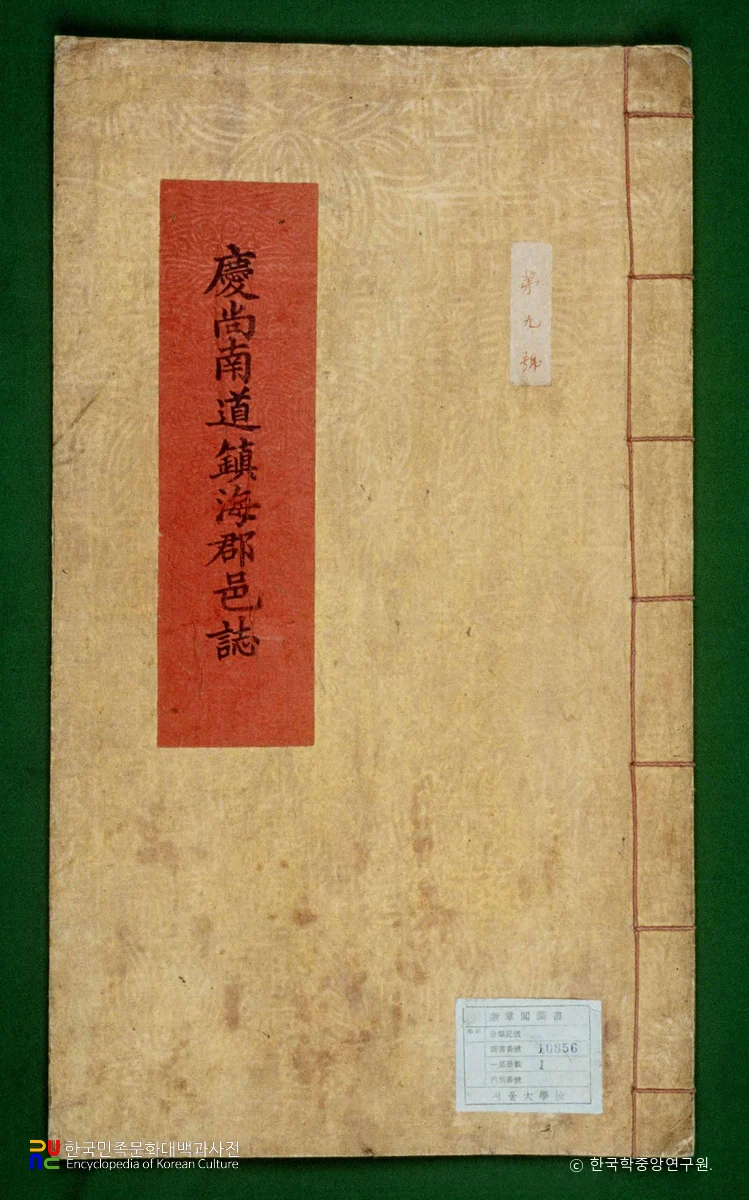 慶尚南道鎮海郡邑誌
第九號
奎章閣圖書
圖書番號 10856
一部冊數 1
서울大學校
한국민족문화대백과사전
Encyclopedia of Korean Culture
© 한국학중앙연구원.